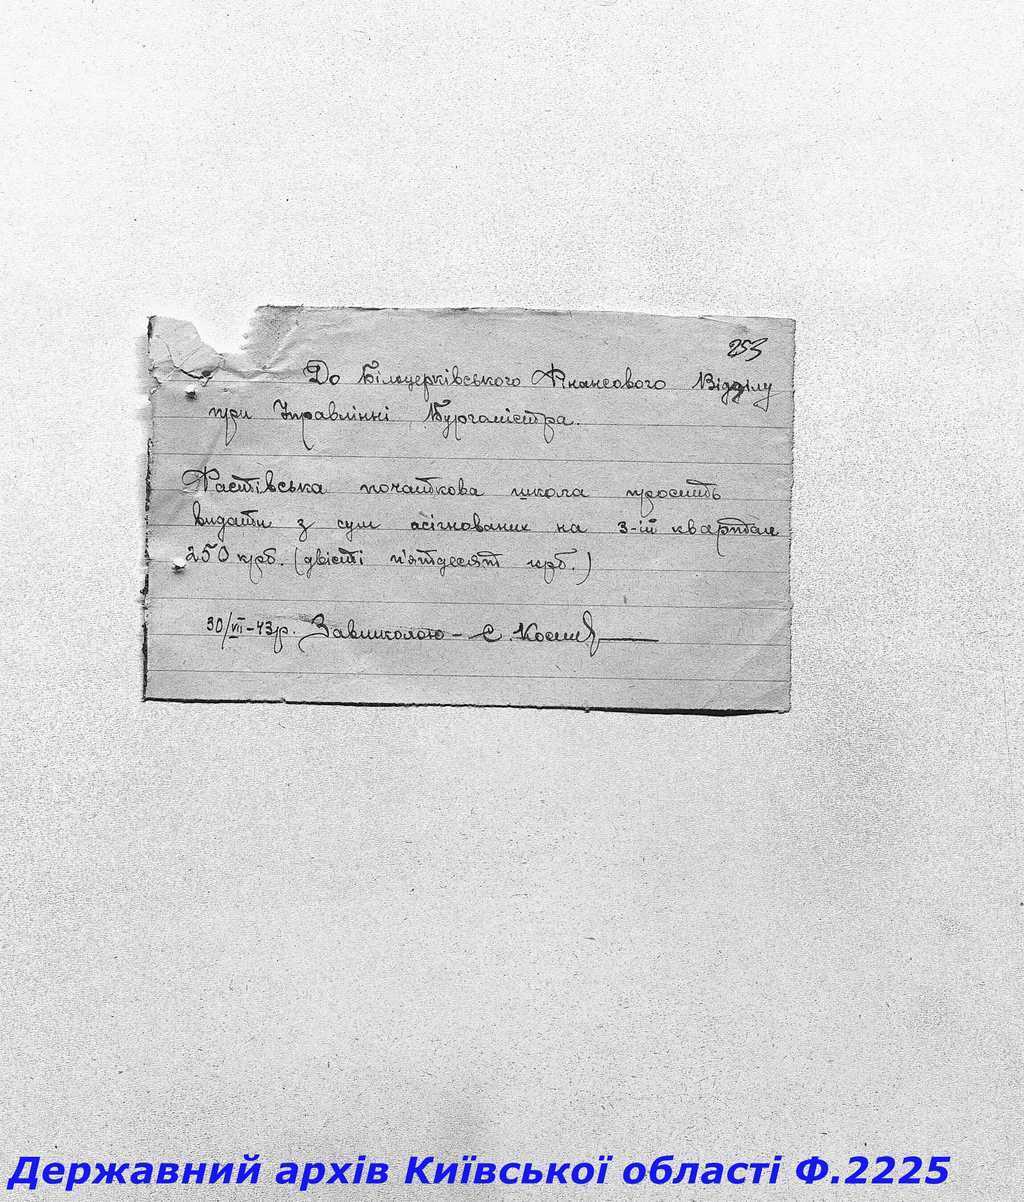 253
До Білоцерківського Фінансового Відділу
при Управлінні Бургомістра.
Фастівська початкова школа просить
видати з сум асігнованих на 3-ій квартал
250 крб. (двісті п'ятдесят крб.)
30/VII-43р. Завшколою - Є.
Державний архів Київської області Ф.2225